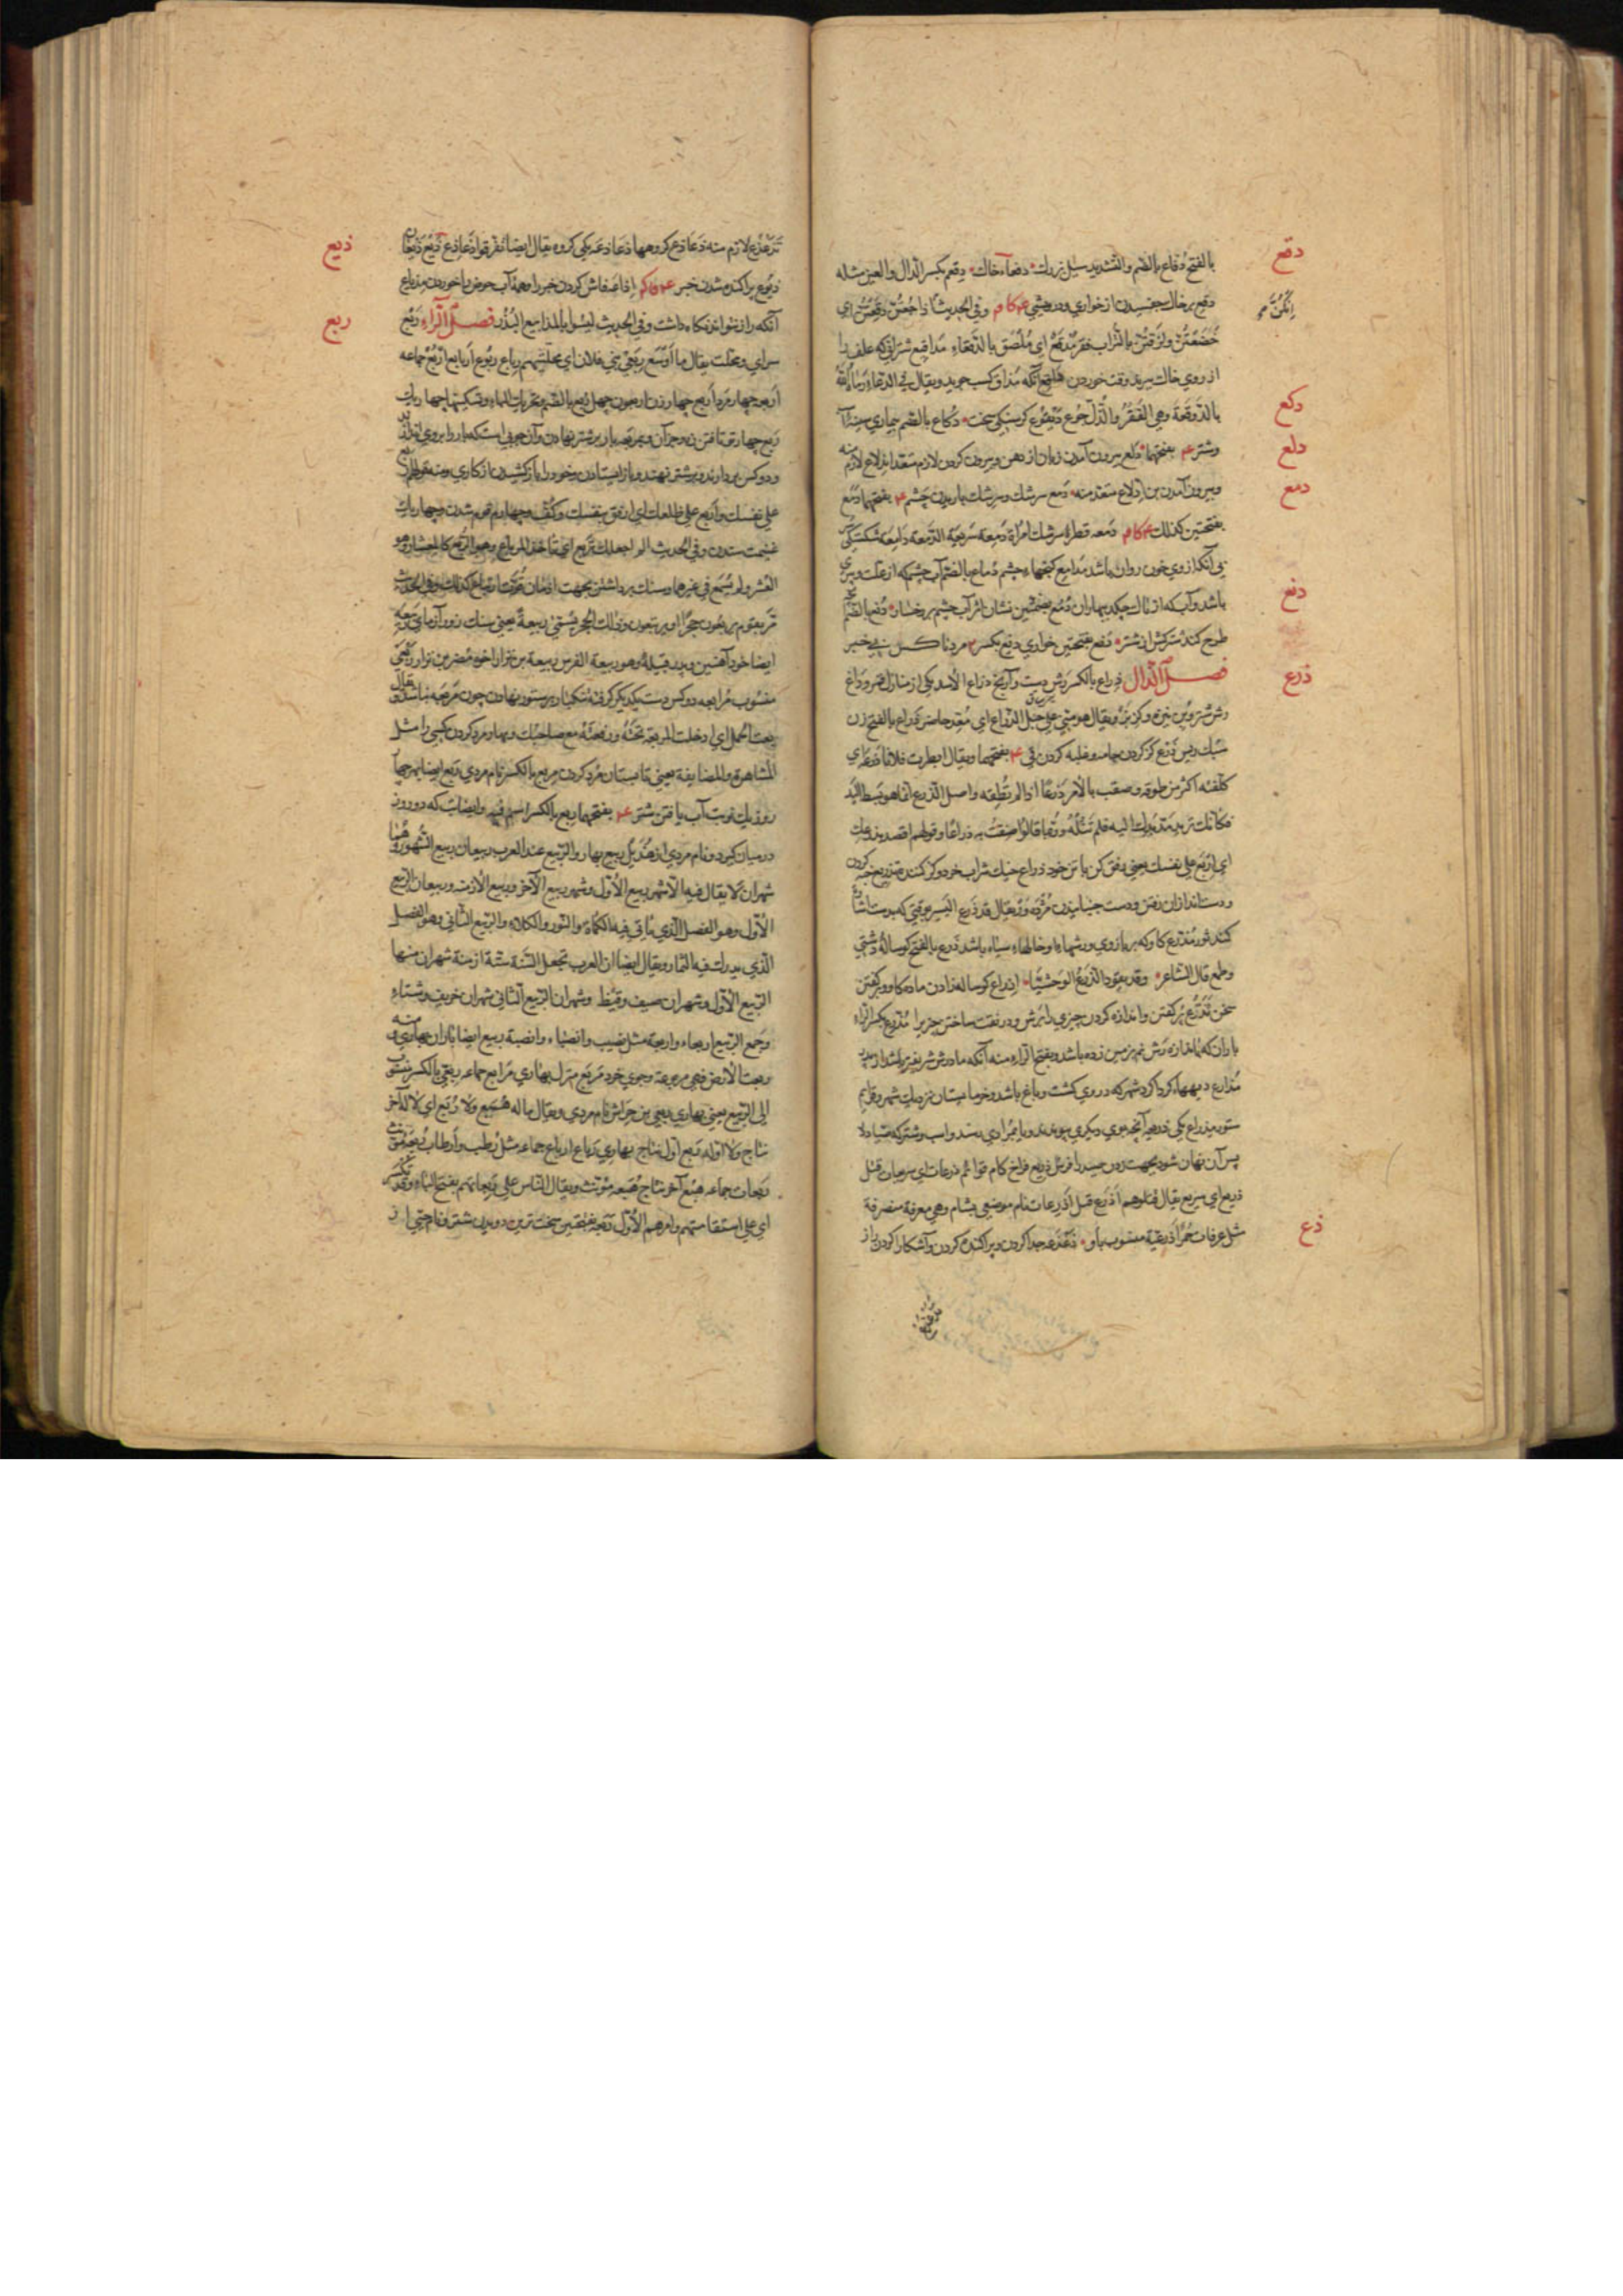 دقع
بالفتح دُفاع بالضم والتشديد سيل بزرك دقعآء خاك دِقعِم بكسر الدال والعين مثله
دقع برخاك چفسيدن از خواري ودرويشي وفي الحديث اذا جُعتُنّ دَقِعتُنّ اي
اِنَّكُنَّ
خَضَعتُنّ ولَزِقتُنّ بالتراب فقر مُدقع اي مُلصَق بالدقعاء مَداقيع شتراني كه علف را
از روي خاك وقت خوردن آنكه كسب جويد ويقال في الدعاء رماه الله
دكع
بالدَّوقَعة وهي الفَقرُ والذُّلّ جُوع دَيقوع كرسنكي سخت دُكاع بالضم بيماري سينه
دلع
وشتر بفتحهما دَلع بيرون آمدن زبان از دهن وبيرون كردن لازم متعد اندلاع لازم منه
دمع
وبيرون آمدن اِدلاع متعد منه دَمع سرشك وسرشك باريدن چشم بفتحهما دَمَع
بفتحتين كذلك دَمعه قطرهٔ سرشك امراة دَمِعة سريعة الدَّمعة دامِعة شكستكي سر
يي آنكه از وي خون روان باشد مَدامع كنجهاء چشم دُماع بالضم آب چشم كه از علت وپيري
دنع
باشد وآب كه از تاك چكد بهاران دُمُع بضمتين نشان اثر آب چشم بر رخسار
طرح كند شتركش از شتر دَنَع بفتحتين خواري دنع بكسر مرد ناكس بي خير
ذرع
فصل الذال ذِراع بالكسر رش دست وآرنج ذراع الاسد يكي از منازل قمر وداغ
رش شتر وبُن نيزه وكز ويقال هو مني على حبل الذراع اي مُعَد حاضر ذَراع بالفتح زن
سبك ريس ذَرع كز كردن جامه وغلبه كردن قي بفتحهما ويقال ابطرت فلانا ذَرعه اي
كلّفته اكثر من طوقه وضقت بالامر ذَرعًا اذا لم تُطِقه واصل الذرع انما هو بسط اليد
فكانك تريد مدّ يدك اليه فلم تَنَلهُ وربما قالوا ضِقتُ به ذراعًا وقولهم اقصد بذرعك
اي اِربَع على نفسك يعني رفق كن با تن خود ذراع خيك شراب خرد وكز كننده تذريع خبه كردن
ودست اندازان رفتن ودست جنبانيدن مُژده وَر يقال قد ذَرع البشير وقتي كه بدست اشارة
كند ثور مُذرّع كاو كه بر بازوي ورشهاء او خالهاء سياه باشد ذَرَع بالفتح كوسالهٔ دشتي
وطمع قال الشاعر وقد يقود الذَّرَعُ الوَحشيّا اِذراع كوساله زادن ماده كاو وبركفتن
سخن تَذَرُّع پُر كفتن واندازه كردن چيزي را برش ودر نفت ساختن جزيرا مُذرّع بكسر الراء
باران كه باندازه رش نم بزمين زده باشد وبفتح الراء منه آنكه مادرش شريفتر باشد از پدر
مَذارع ديههاء كرداكرد شهر كه در وي كشت وباغ باشد وخرماستان نزديك شهر وقوايم
ستور مِذراع يكي ذريعه آنچه بوي ديكري پيوندند ويا بمرادي رسند واسب وشتر كه صياد لا
پس آن نهان شود بجهت زدن صيد را فرس ذَريع فراخ كام قوائم ذرعات اي سريعات قتل
ذريع اي سريع يقال قتلوهم اَذرَع قتل اَذرِعات نام موضعي بشام وهي معرفة منصرفة
ذع
مثل عرفات خَمرٌ اَذرِعيّة منسوب باو ذَعذَعه جدا كردن وپراكنده كردن وآشكارا كردن راز
تَذَعذُع لازم منه ذَعاذع كروهها ذَعاذعه يكي كروه يقال ايضا تفرقوا ذَعاذع
ذيع
ذَيع ذَيَعان ذُيوع پراكنده شدن خبر اذاعه فاش كردن خبر را وهمهٔ آب حوض باخوردن مِذياع
ربع
آنكه راز نتواند نكاه داشت وفي الحديث ليسُوا بالمَذاييع البُذُر فصل الراء رَبع
سراي ومحلت يقال ما اَوسَع رَبعَ بني فلان اي محلّتهم رِباع رُبوع اَرباع اَربُع جماعه
اَربعه چهار مَرد اَربع چهار زن اربعون چهل رُبع بالضم وتحريك الباء وتسكينها چهار يك
رَبع چهار تو تافتن زه وجز آن وبار بر شتر نهادن وآن چوبي است كه بار را بروي
ودو كس بردارند وبرشتر نهند وباز ايستادن وخود را باز كشيدن از كاري ومنه قولهم
على نفسك واَربع على ظلعك اي ارفق بنفسك وكُفّ وچهارم قوم شدن وچهار يك
غنيمت ستدن وفي الحديث الم اجعلك تربع اي تاخذ المرباع وهو الرُّبع كالمعشار وهو
العُشر ولم يُسمَع في غيرهما وسنك برداشتن بجهت امتحان قوّت ارتباع كذلك وفي الحديث
مرّ بقوم يربَعون حجرًا او يرتبعون وذلك الحجر يُسمّى رَبيعةً يعني سنك زورآزماي رَبيعه
ايضا خود آهنين وپدر قبيلة وهو ربيعة الفرس ربيعة بن نزار اخو مُضر بن نزار رَبَعيّ
منسوب مُرابعه دو كس دست يكديكر كرفته تنكبار بر ستور نهادن چون مَربعه نباشد يقال
ربعت الحمل اي ادخلت المِربعة تحته ورفعته مع صاحبك وبهار مزد كردن كسي را مثل
المُشاهرة والمصايفة يعني تابستان مُزد كردن مِربع بالكسر نام مردي رَبع ايضا
روز يك نوبت آب يافتن شتر بفتحهما ربع بالكسر اسم فيه وايضا تب كه دو روز
درميان كيرد ونام مردي از هُذَيل ربيع بهار والربيع عند العرب ربيعان ربيع الشهور وهُما
شهران لا يقال فيه الا شهر ربيع الاول وشهر ربيع الآخر وربيع الازمنة وربيعان الربيع
الاول وهو الفصل الذي ياتي فيه الكماة والنَّور والكلاء والربيع الثاني وهو الفصل
الذي يدرك فيه الثمار ويقال ايضا ان العرب تجعل السنة ستة ازمنة شهران منها
الربيع الاول وشهران صيف وقيظ وشهران الربيع الثاني شهران خريف وشتاء
وجمع الربيع اربعاء واربعة مثل نصيب وانصباء وانصبة ربيع ايضا باران بهاري ومنه
رُبعت الارض فهي مربوعة وجوي خرد مَربع منزل بهاري مَرابع جماعه رِبعي بالكسر منسوب
الى الربيع يعني بهاري ربعي بن حِراش نام مردي ويقال ما له هُبَع ولا رُبَع اي لا له آخر
نتاج ولا اوله رُبَع اول نتاج بهاري رِباع ارباع جماعه مثل رُطَب واَرطاب رُبَعه مؤنث
رُبعات جماعه هُبَع آخر نتاج هُبَعه مؤنث ويقال الناس على رَبِعاتهم بفتح الباء وقد تكسر
اي على استقامتهم وامرهم الاول رَبَعه بفتحتين سخت ترين دويدن شتر ونام حيّي از